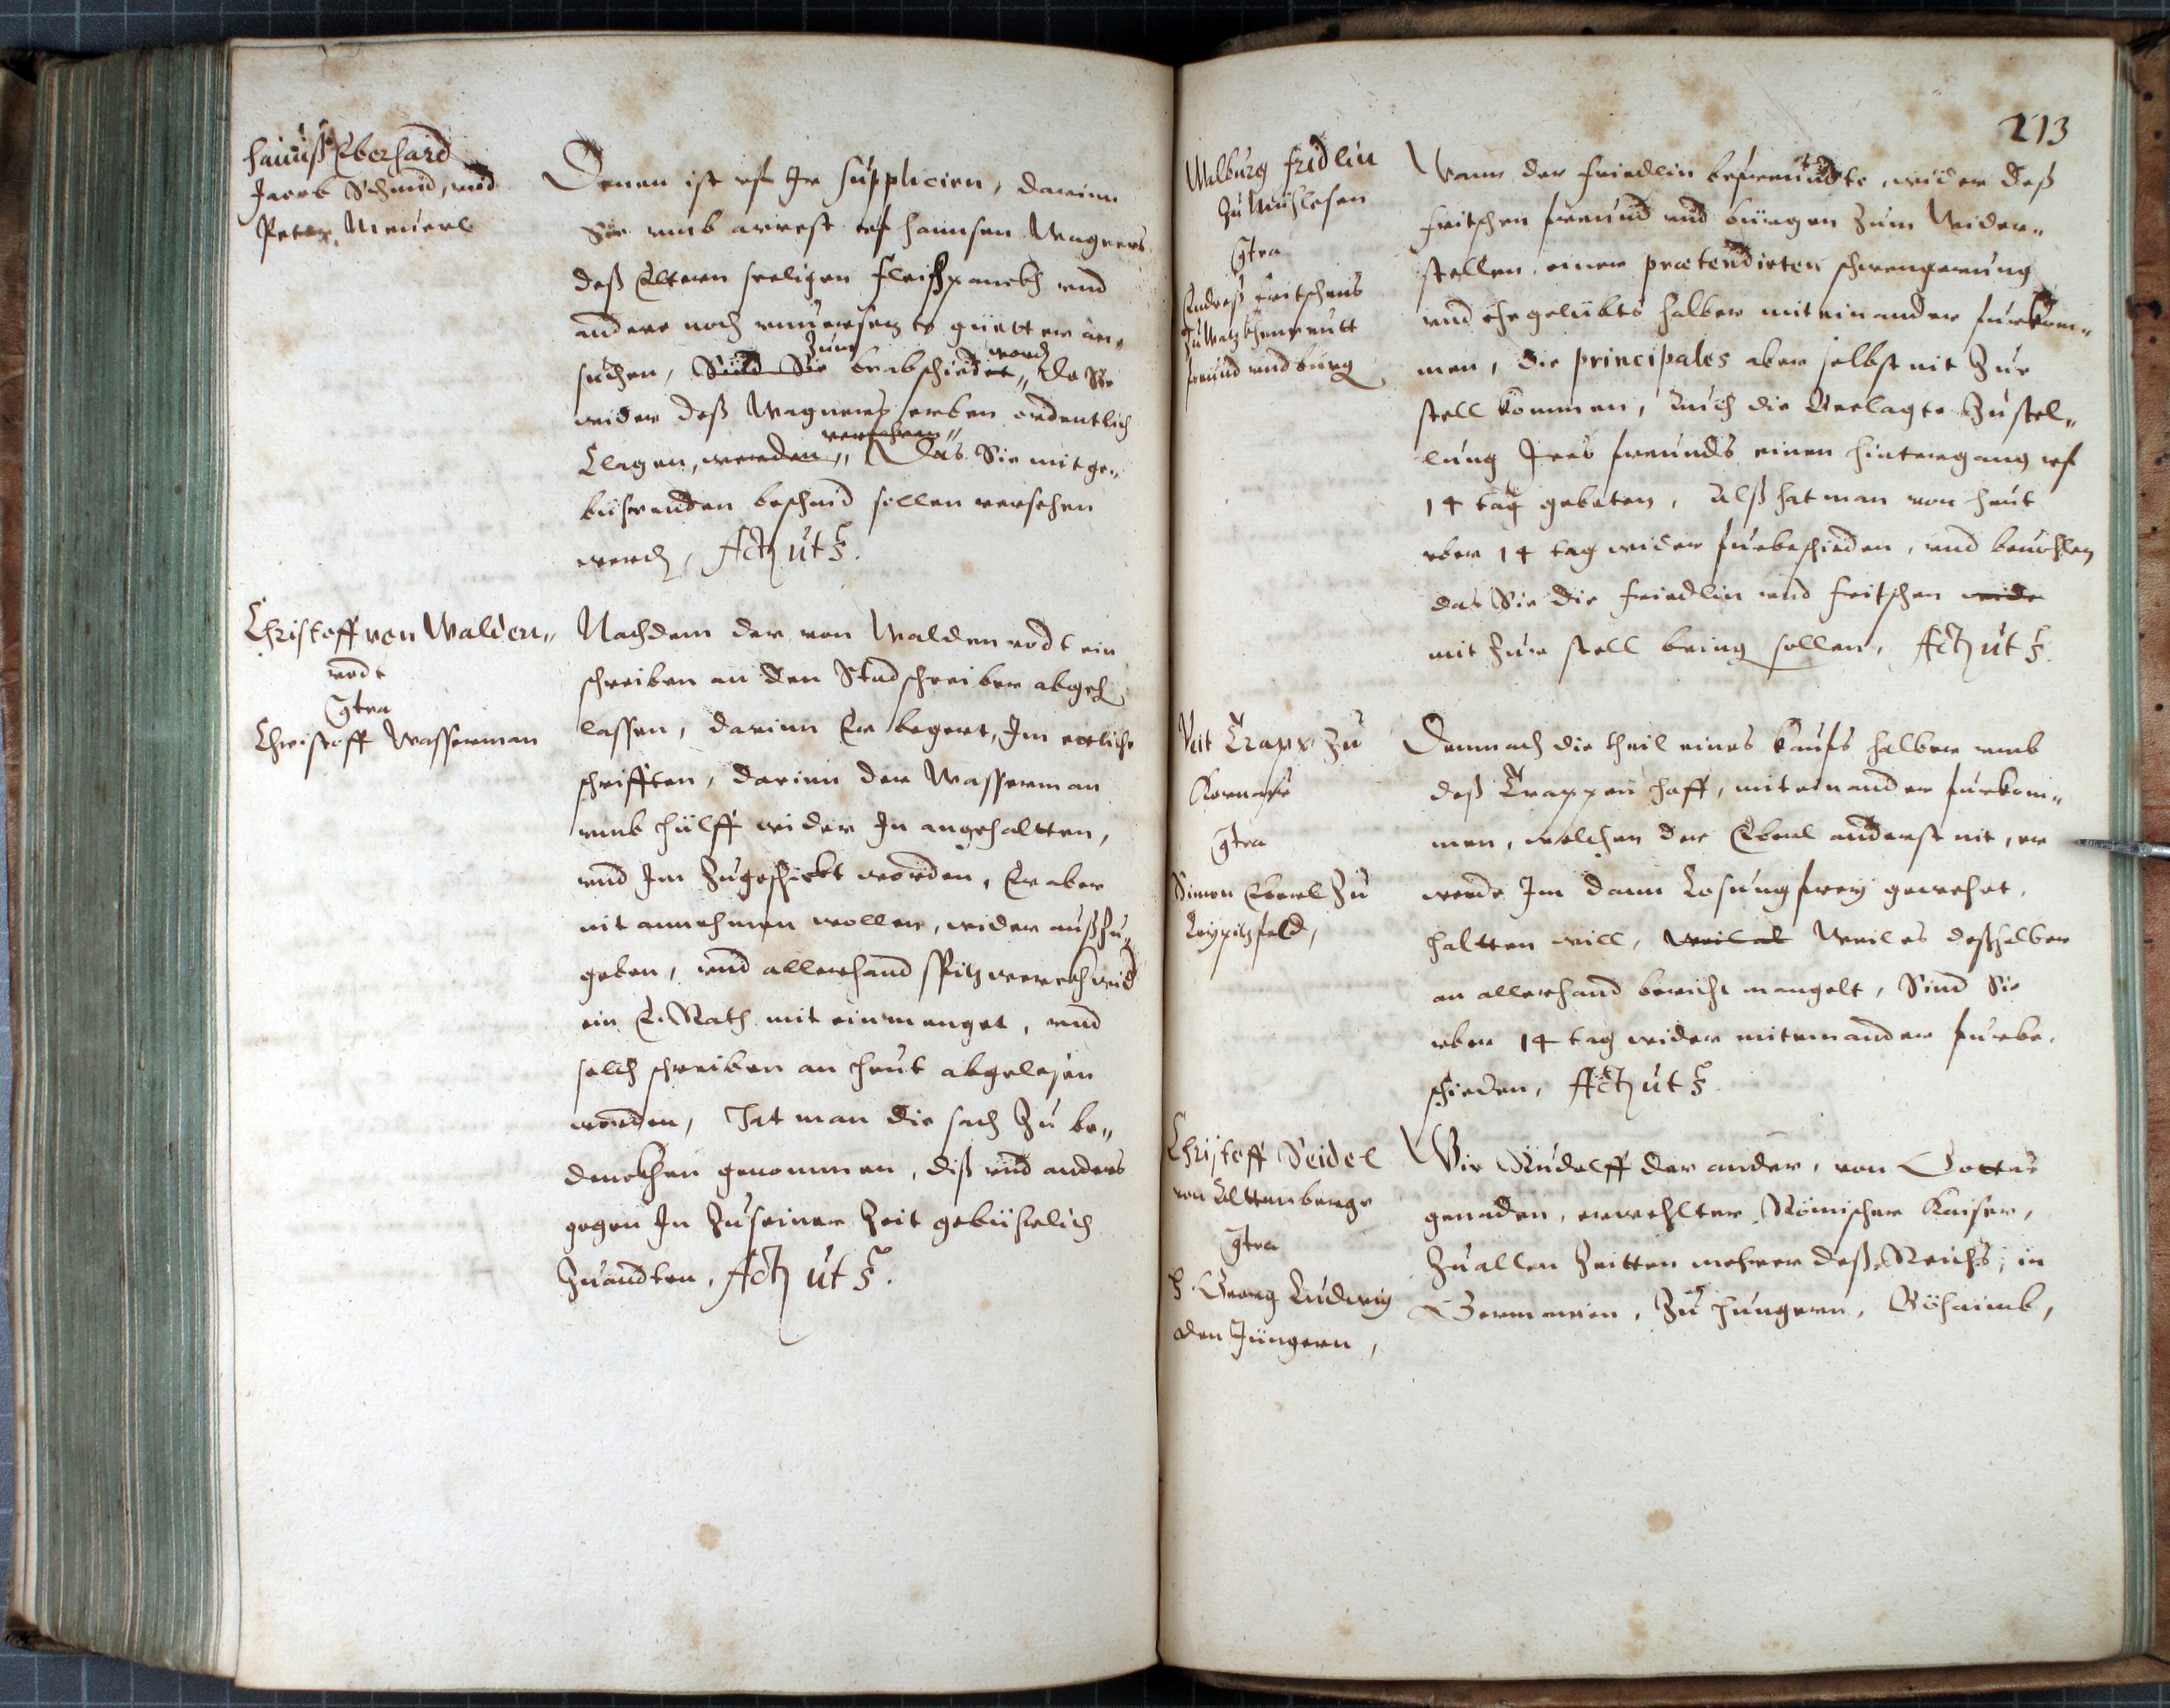 Hannß Eberhard
Jacob Schmid, und
Peter Meuerl
Denen ist uf Ir supplicirn, darinn
Sie umb arrest uf hannsen Wagners
deß Eltern seeligen fleischpanckh und
andere noch unuersetzte güetter an„
suchen, Sind Sie zum beabschiedet word„ da Sie
wider deß Wagners erben ordentlich
Clagen, werden„ verfahren„ Das Sie mit ge„
bührenden bescheid sollen versehen
werd, Act ut s.
Christoff von Walden„
rodt
Contra
Christoff Wasserman
Nachdem der von Waldenrodt ein
schreiben an den Stadschreiber abgeh
lassen, darinn Er begert, Im etliche
schrifften, darinn der Wasserman
umb hülff wider In angehaltten,
und Im zugeschickt worden, Er aber
nit annehmen wollen, wider außzu„
geben, und allerhand spitz
ein E. Rath mit einmenget, und
solch schreiben an heut abgelesen
worden, Hat man die sach zu be„
denckhen genommen, diß und anders
gegen In zu seiner Zeit gebührlich
Zuandten, Act ut s.
213
Walburg fridlin
zu Mühlesen
Contra
Andreß fritschens
zu
freund und bürg
Wann der friedlin befreundte, wider deß
fritschen freund und bürgen zum Wider„
stellen, einer praetendirten schwengerung
und ehegelübts halber miteinander furkom„
men, die principales aber selbst nit zur
stell kommen, Auch die Beclagte zustel„
lung Ires freunds einen hindergang uf
14 tag gebeten, Alß hat man von heut
uber 14 tag wider furbeschieden, und beuohlen
das Sie die friedlin und fritschen wide
mit zur stell bring sollen, Act ut s.
Veit Trapp zu
Contra
Simon Eberl zu
Demnach die theil eines kaufs halber umb
deß Trappen hoff, miteinander furkom„
men, welchen der Eberl anderst nit, er
werde Im dann Losung frey gewehrt,
haltten will, weil al Weil es deßhalben
an allerhand bericht mangelt, Sind Sie
uber 14 tag wider miteinander furbe„
schieden, Act ut s.
Christoff Seidel
von Alttenberge
Contra
H. Georg Ludwig
den Jüngern,
Wir Rudolff der ander, von Gottes
genaden, erwehlter Römischer Kaiser,
zu allen Zeitten mehrer deß Reichs, in
Germanien, zu Hungern, Böhaimb,